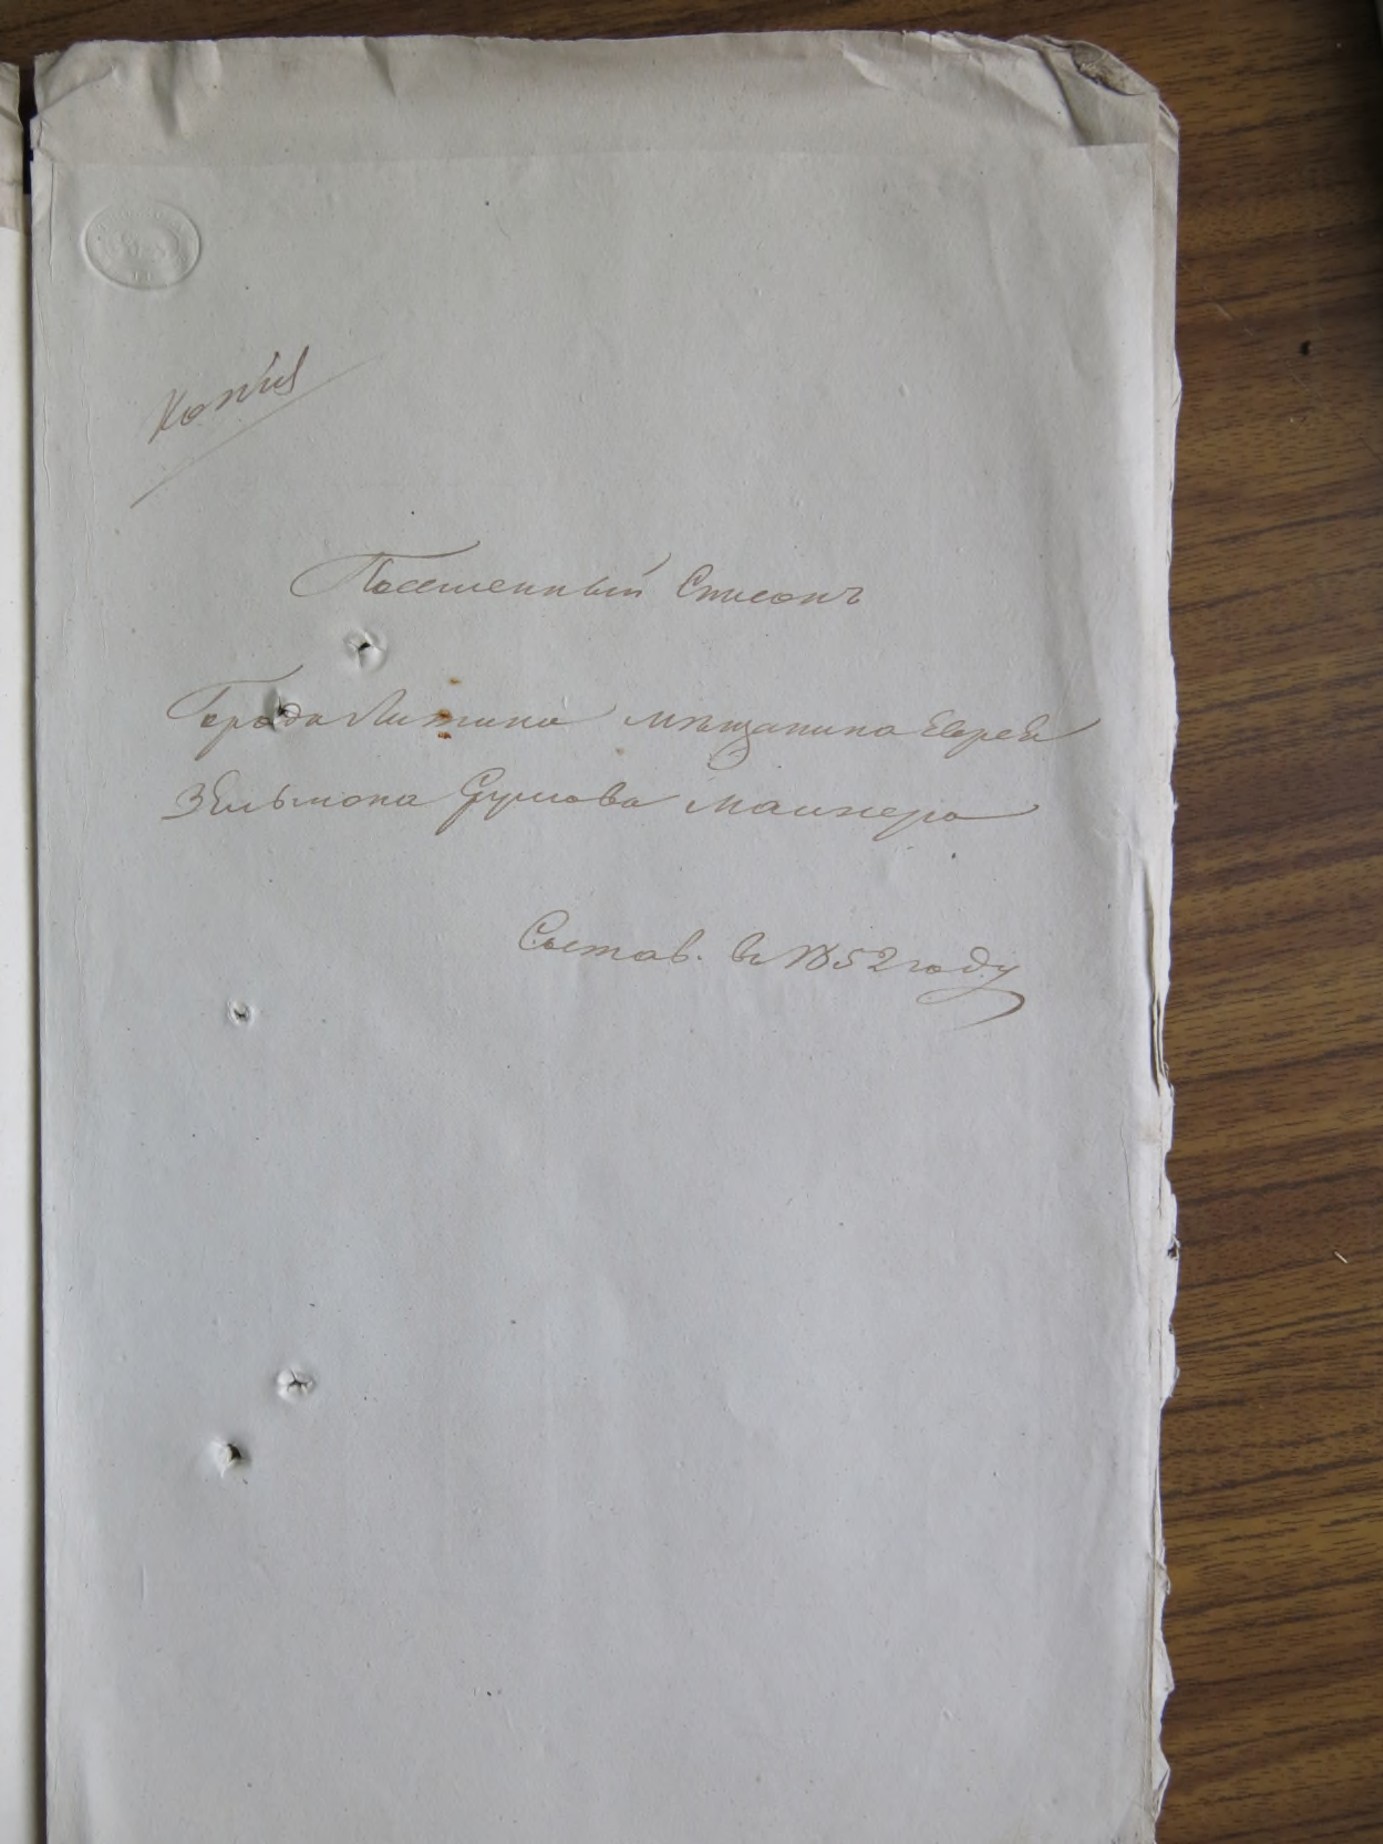 Копія
Посемейный Списокъ
Города Литина мѣщанина Еврея
Зельмона Сруліова
Состав. въ 1852 году